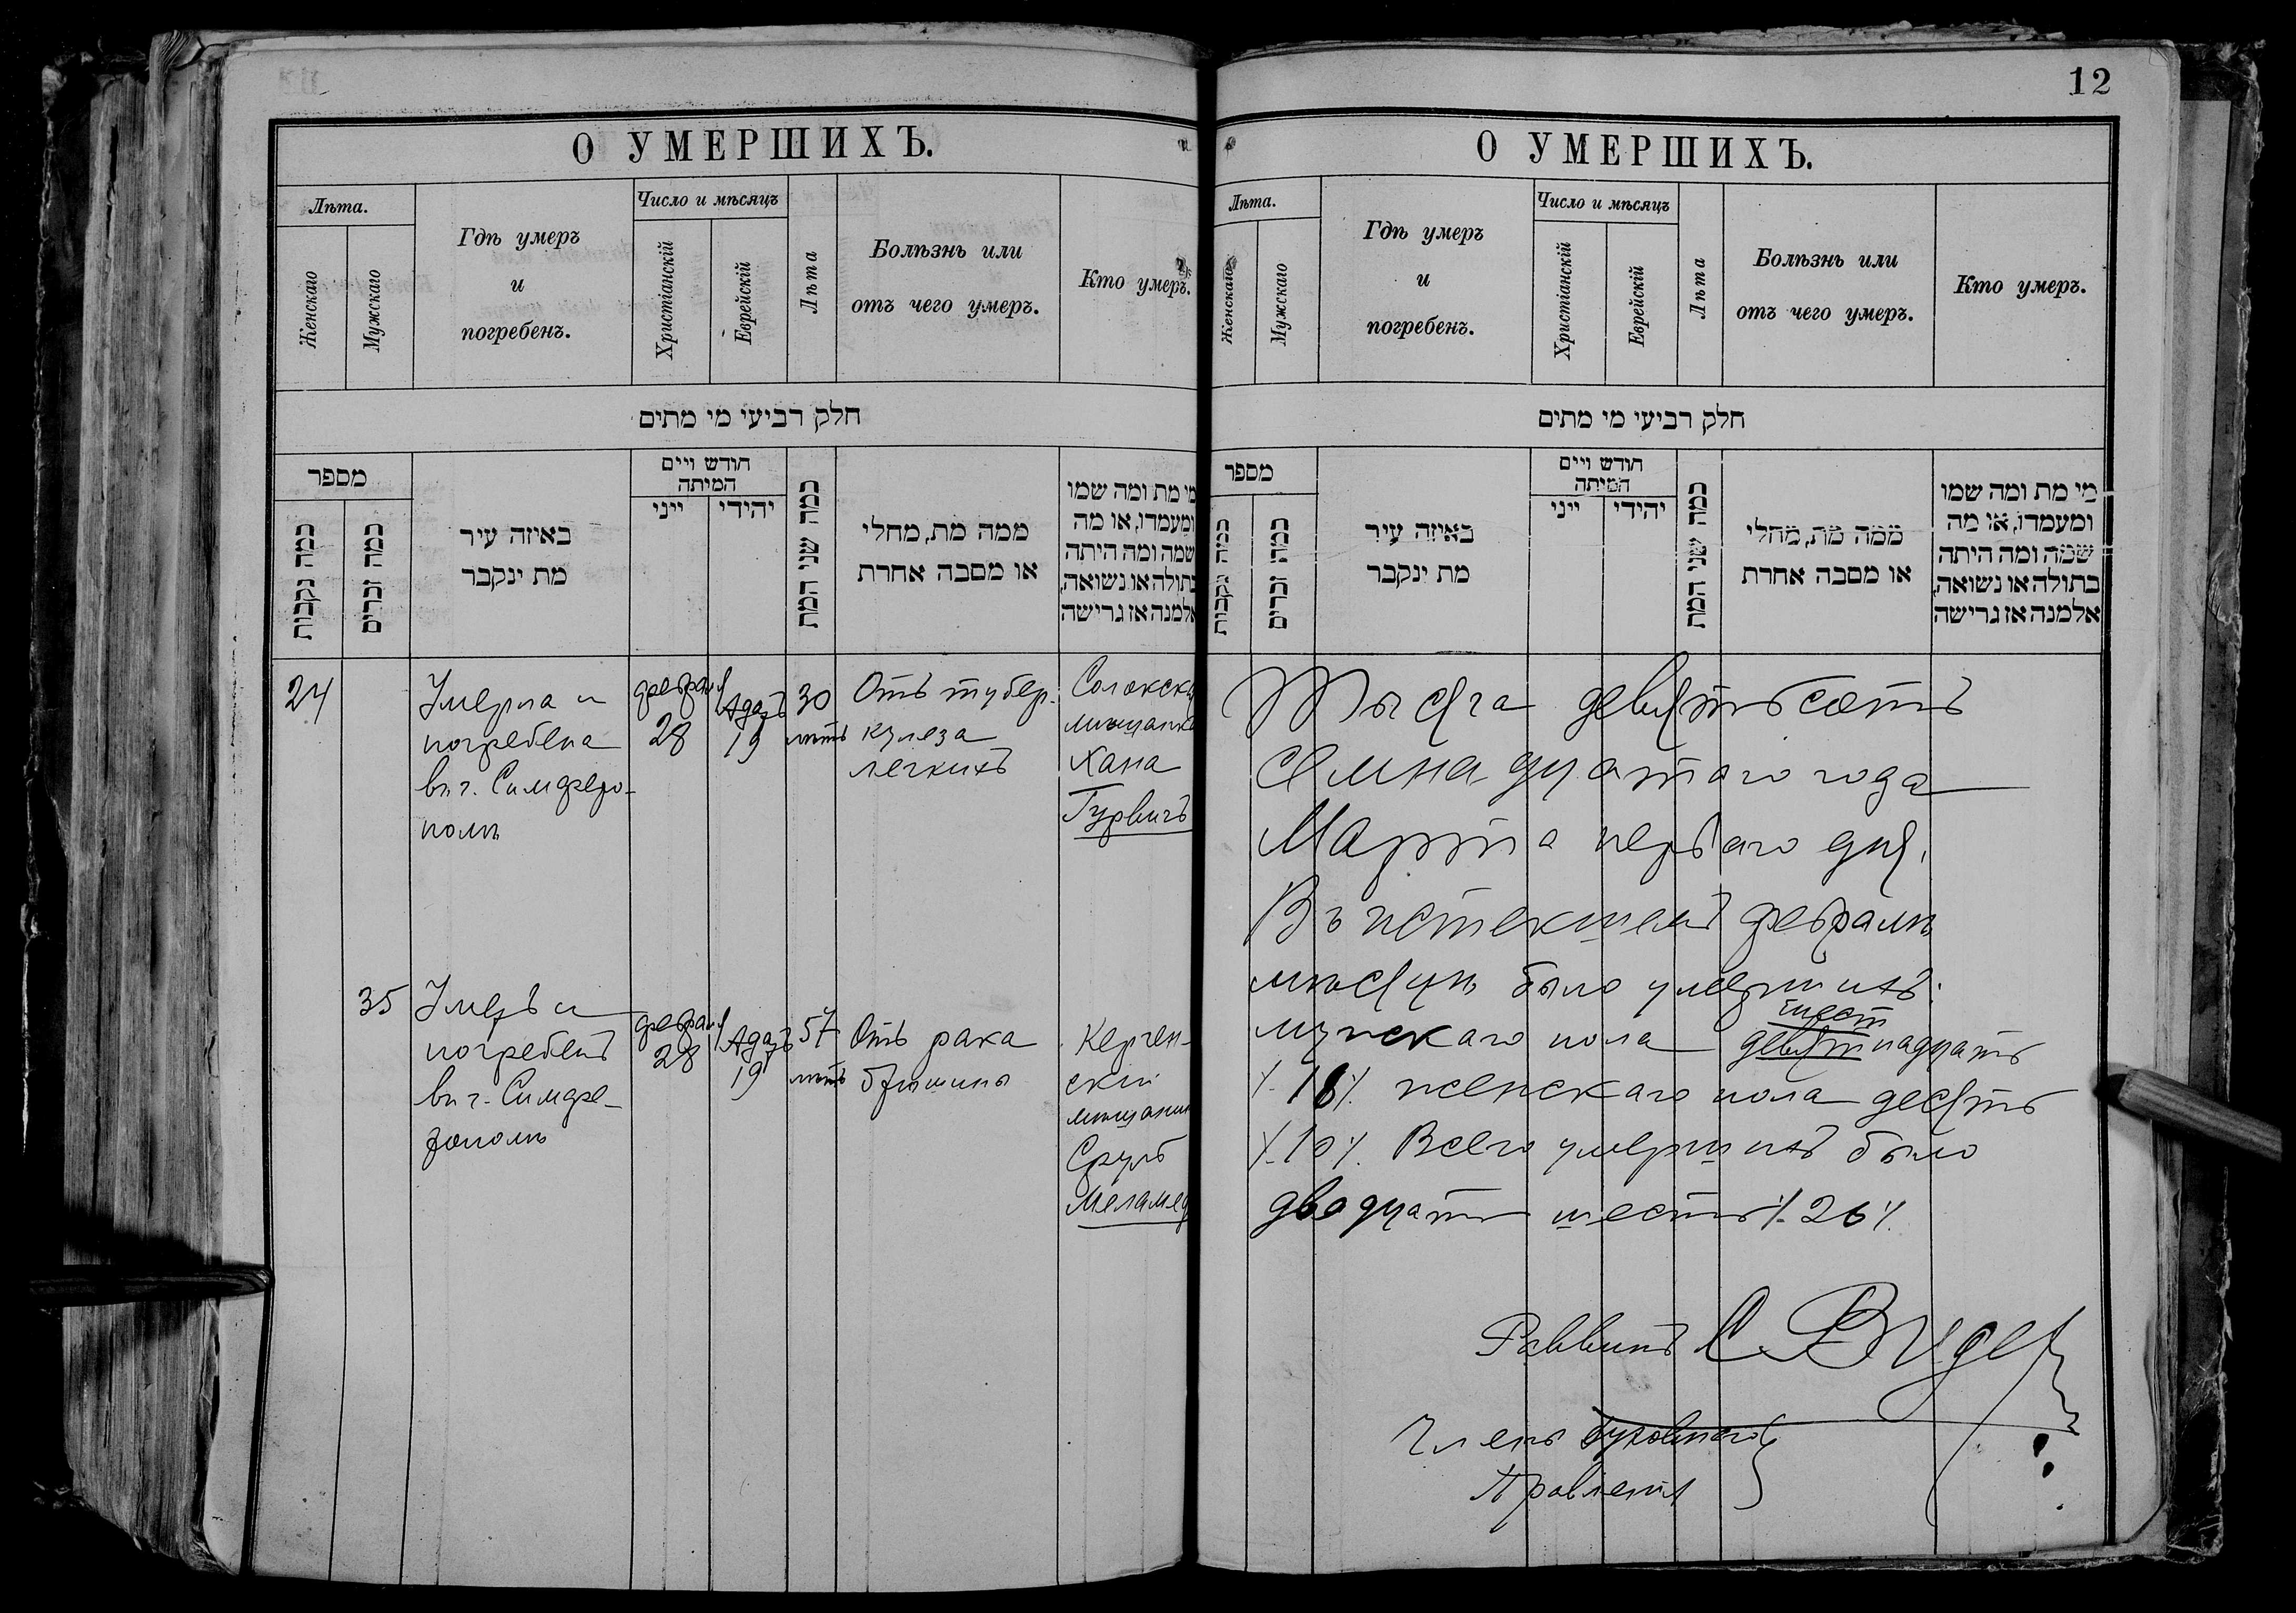 О УМЕРШИХЪ.
Лѣта.
Женскаго
Мужскаго
Гдѣ умеръ
и
погребенъ.
Число и мѣсяцъ
Христіанскій
Еврейскій
Лѣта
Болѣзнь или
отъ чего умеръ.
Кто умеръ.
חלק רביעי מי מתים
מספר
כמה נקבות
כמה זכרים
באיזה עיר
מת ינקבר
חודש ויים
המיתה
ייני
יהידי
כמה שני המת
ממה מת, מחלי
או מסבה אחרת
מי מת ומה שמו
ומעמדו, או מה
שמה ומה היתה
בתולה או נשואה,
אלמנה אז גרישה
24
Умерла и
погребена
въ г. Симферо-
полѣ
февраля
28
Адаръ
19
30
лѣтъ
Отъ тубер-
кулеза
легкихъ
мѣщанка
Хана
Гурвичъ
35
Умеръ и
погребенъ
въ г. Симфе-
рополѣ
февраля
28
Адаръ
19
57
лѣтъ
Отъ рака
брюшины
Керчен-
скій
мѣщанин
Сруль
Меламед
12
О УМЕРШИХЪ.
Лѣта.
Женскаго
Мужскаго
Гдѣ умеръ
и
погребенъ.
Число и мѣсяцъ
Христіанскій
Еврейскій
Лѣта
Болѣзнь или
отъ чего умеръ.
Кто умеръ.
חלק רביעי מי מתים
מספר
כמה נקבות
כמה זכרים
באיזה עיר
מת ינקבר
חודש ויים
המיתה
ייני
יהידי
כמה שני המת
ממה מת, מחלי
או מסבה אחרת
מי מת ומה שמו
ומעמדו, או מה
שמה ומה היתה
בתולה או נשואה,
אלמנה אז גרישה
Тысяча девятьсотъ
семнадцатаго года
Марта перваго дня.
Въ истекшемъ февралѣ
мѣсяцѣ было умершихъ:
шест
мужскаго пола девятнадцать
/.16/. женскаго пола десять
/.10/. Всего умершихъ было
двадцать шесть /.26/.
Раввинъ
Членъ Духовнаго
Правленія